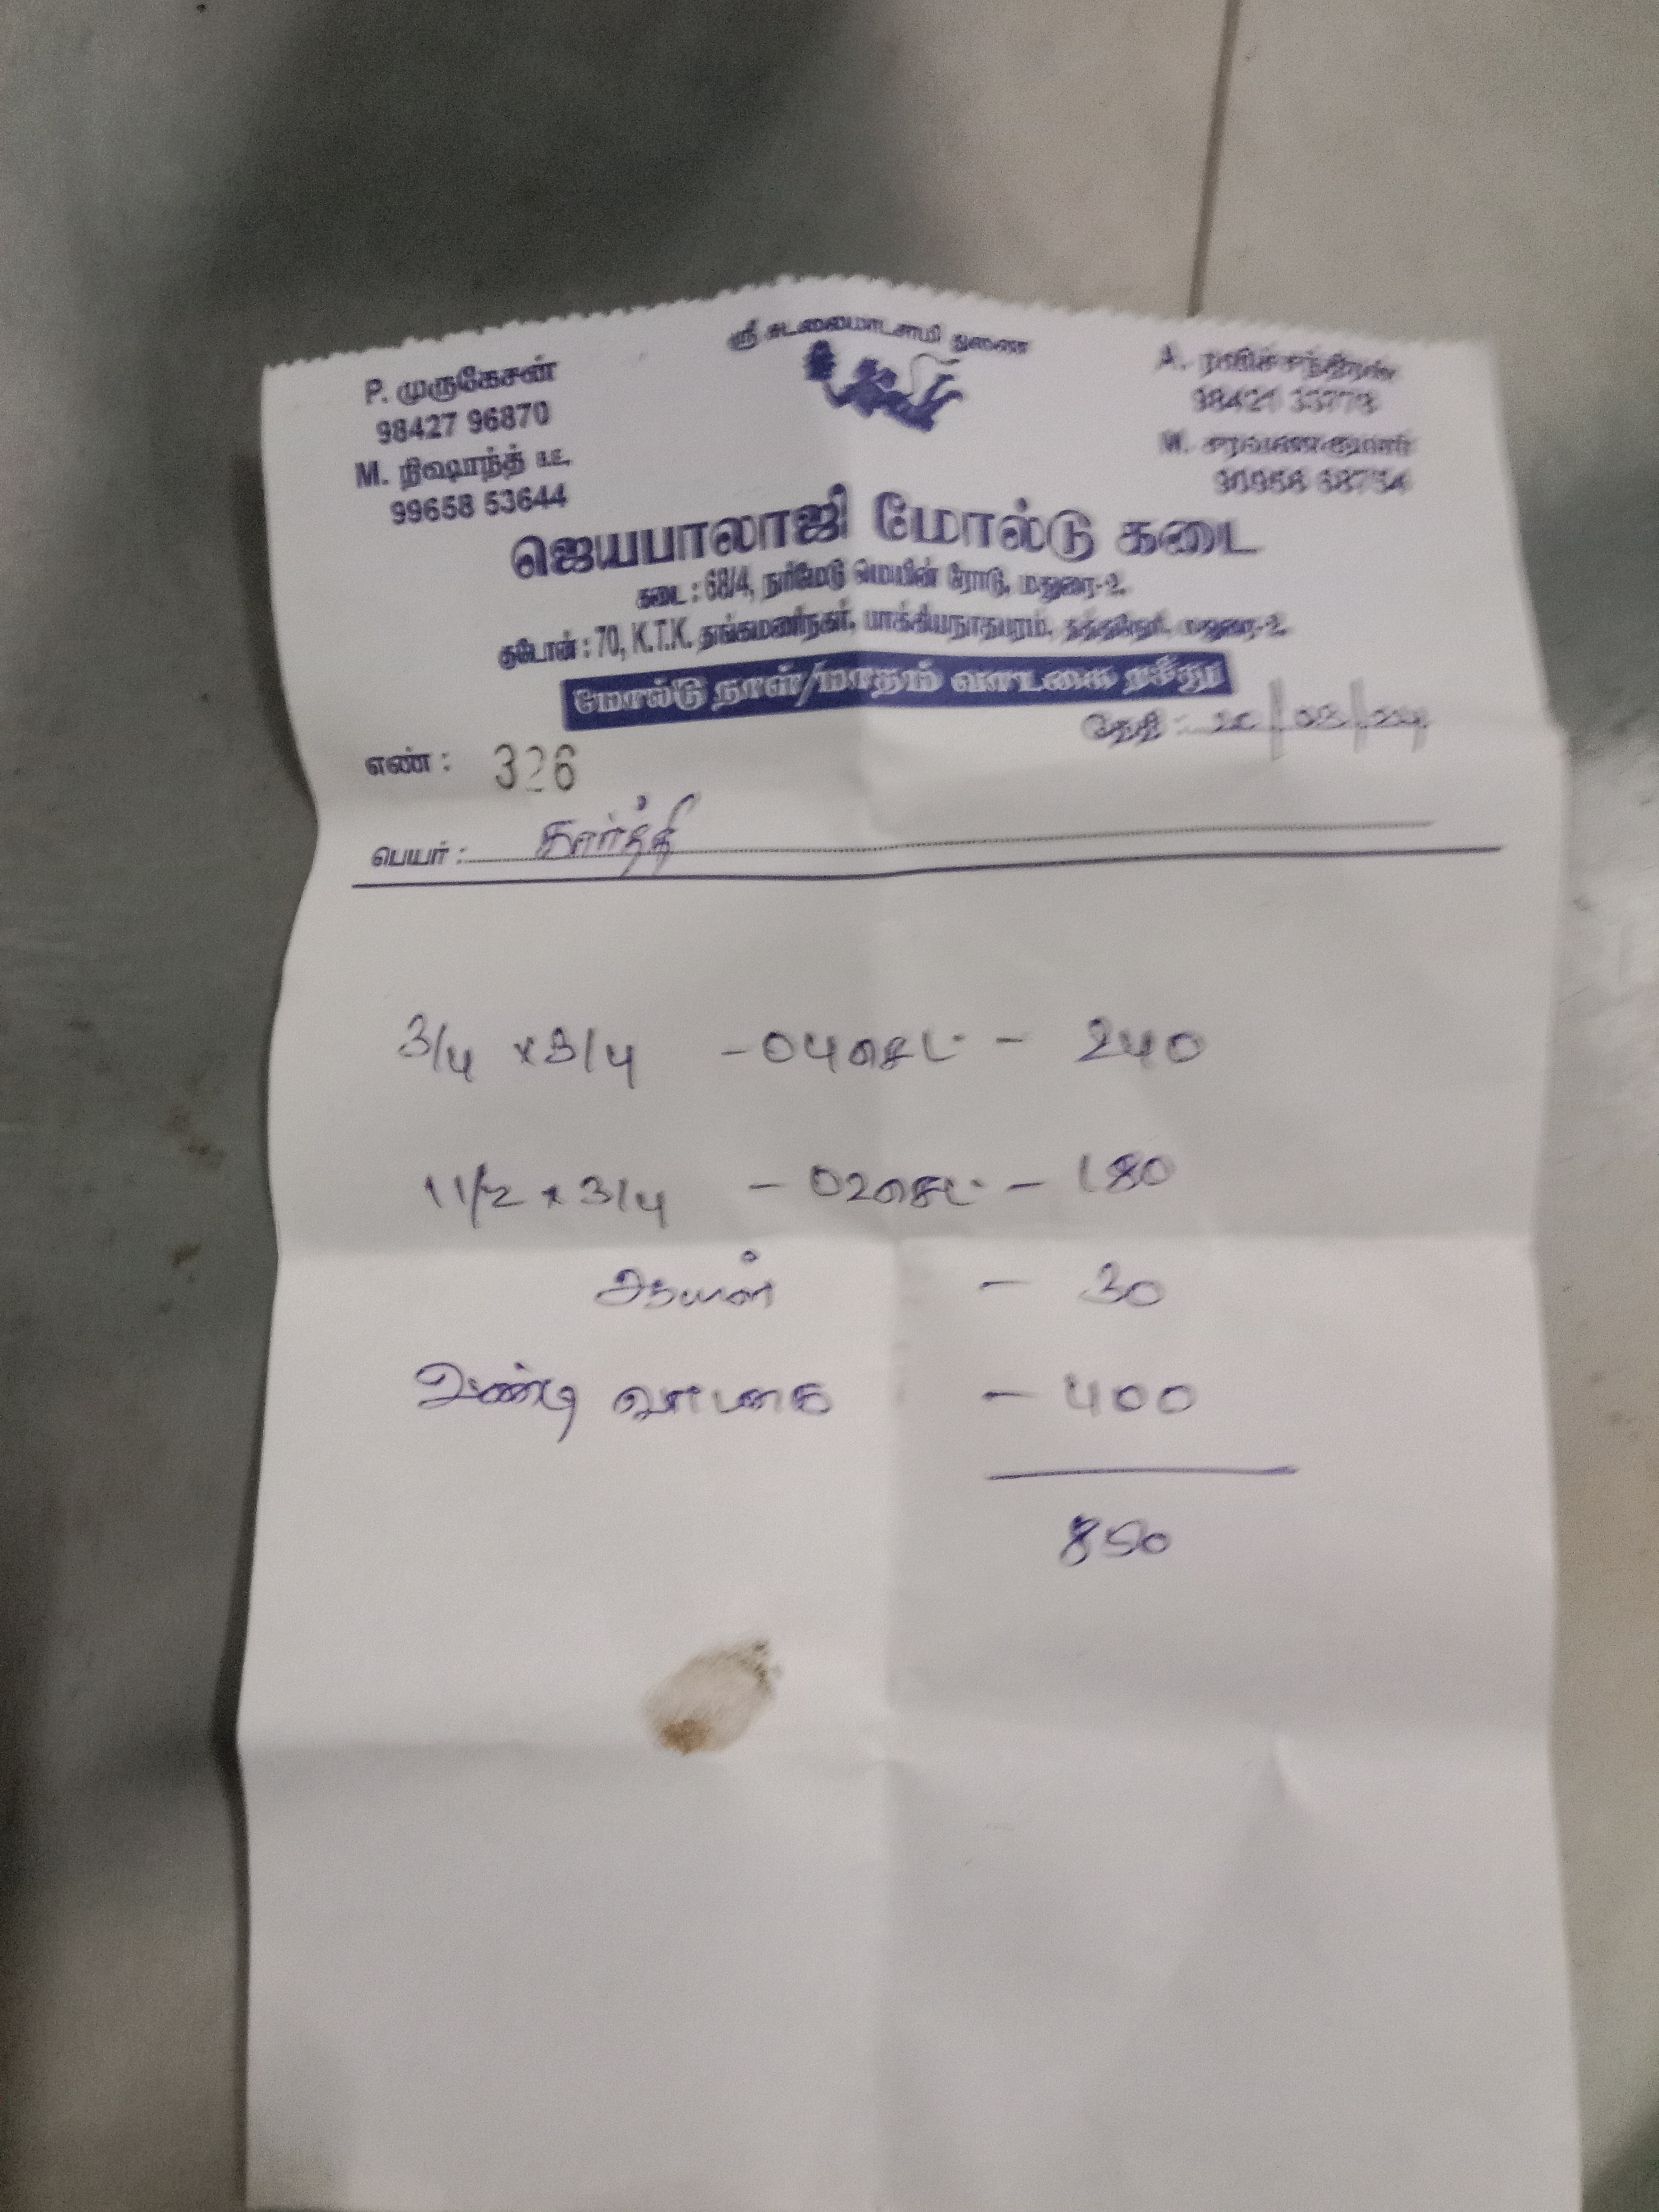 ஸ்ரீ சுடலைமாடசாமி துணை
P. முருகேசன்
98427 96870
M. நிஷாந்த் B.E.,
99658 53644
A. ரவிச்சந்திரன்
98421 33778
M. சரவணகுமார்
ஜெயபாலாஜி மோல்டு கடை
கடை : 68/4, நரிமேடு மெயின் ரோடு, மதுரை-2.
குடோன் : 70, K.T.K. தங்கமணிநகர், பாக்கியநாதபுரம், தத்தனேரி, மதுரை-2.
மோல்டு நாள்/மாதம் வாடகை ரசீது
தேதி :
எண் : 326
பெயர் : கார்த்தி
3/4 x 3/4 - 04 செட் - 240
1 1/2 x 3/4 - 02 செட் - 180
ஆயுள் - 30
வண்டி வாடகை - 400
850